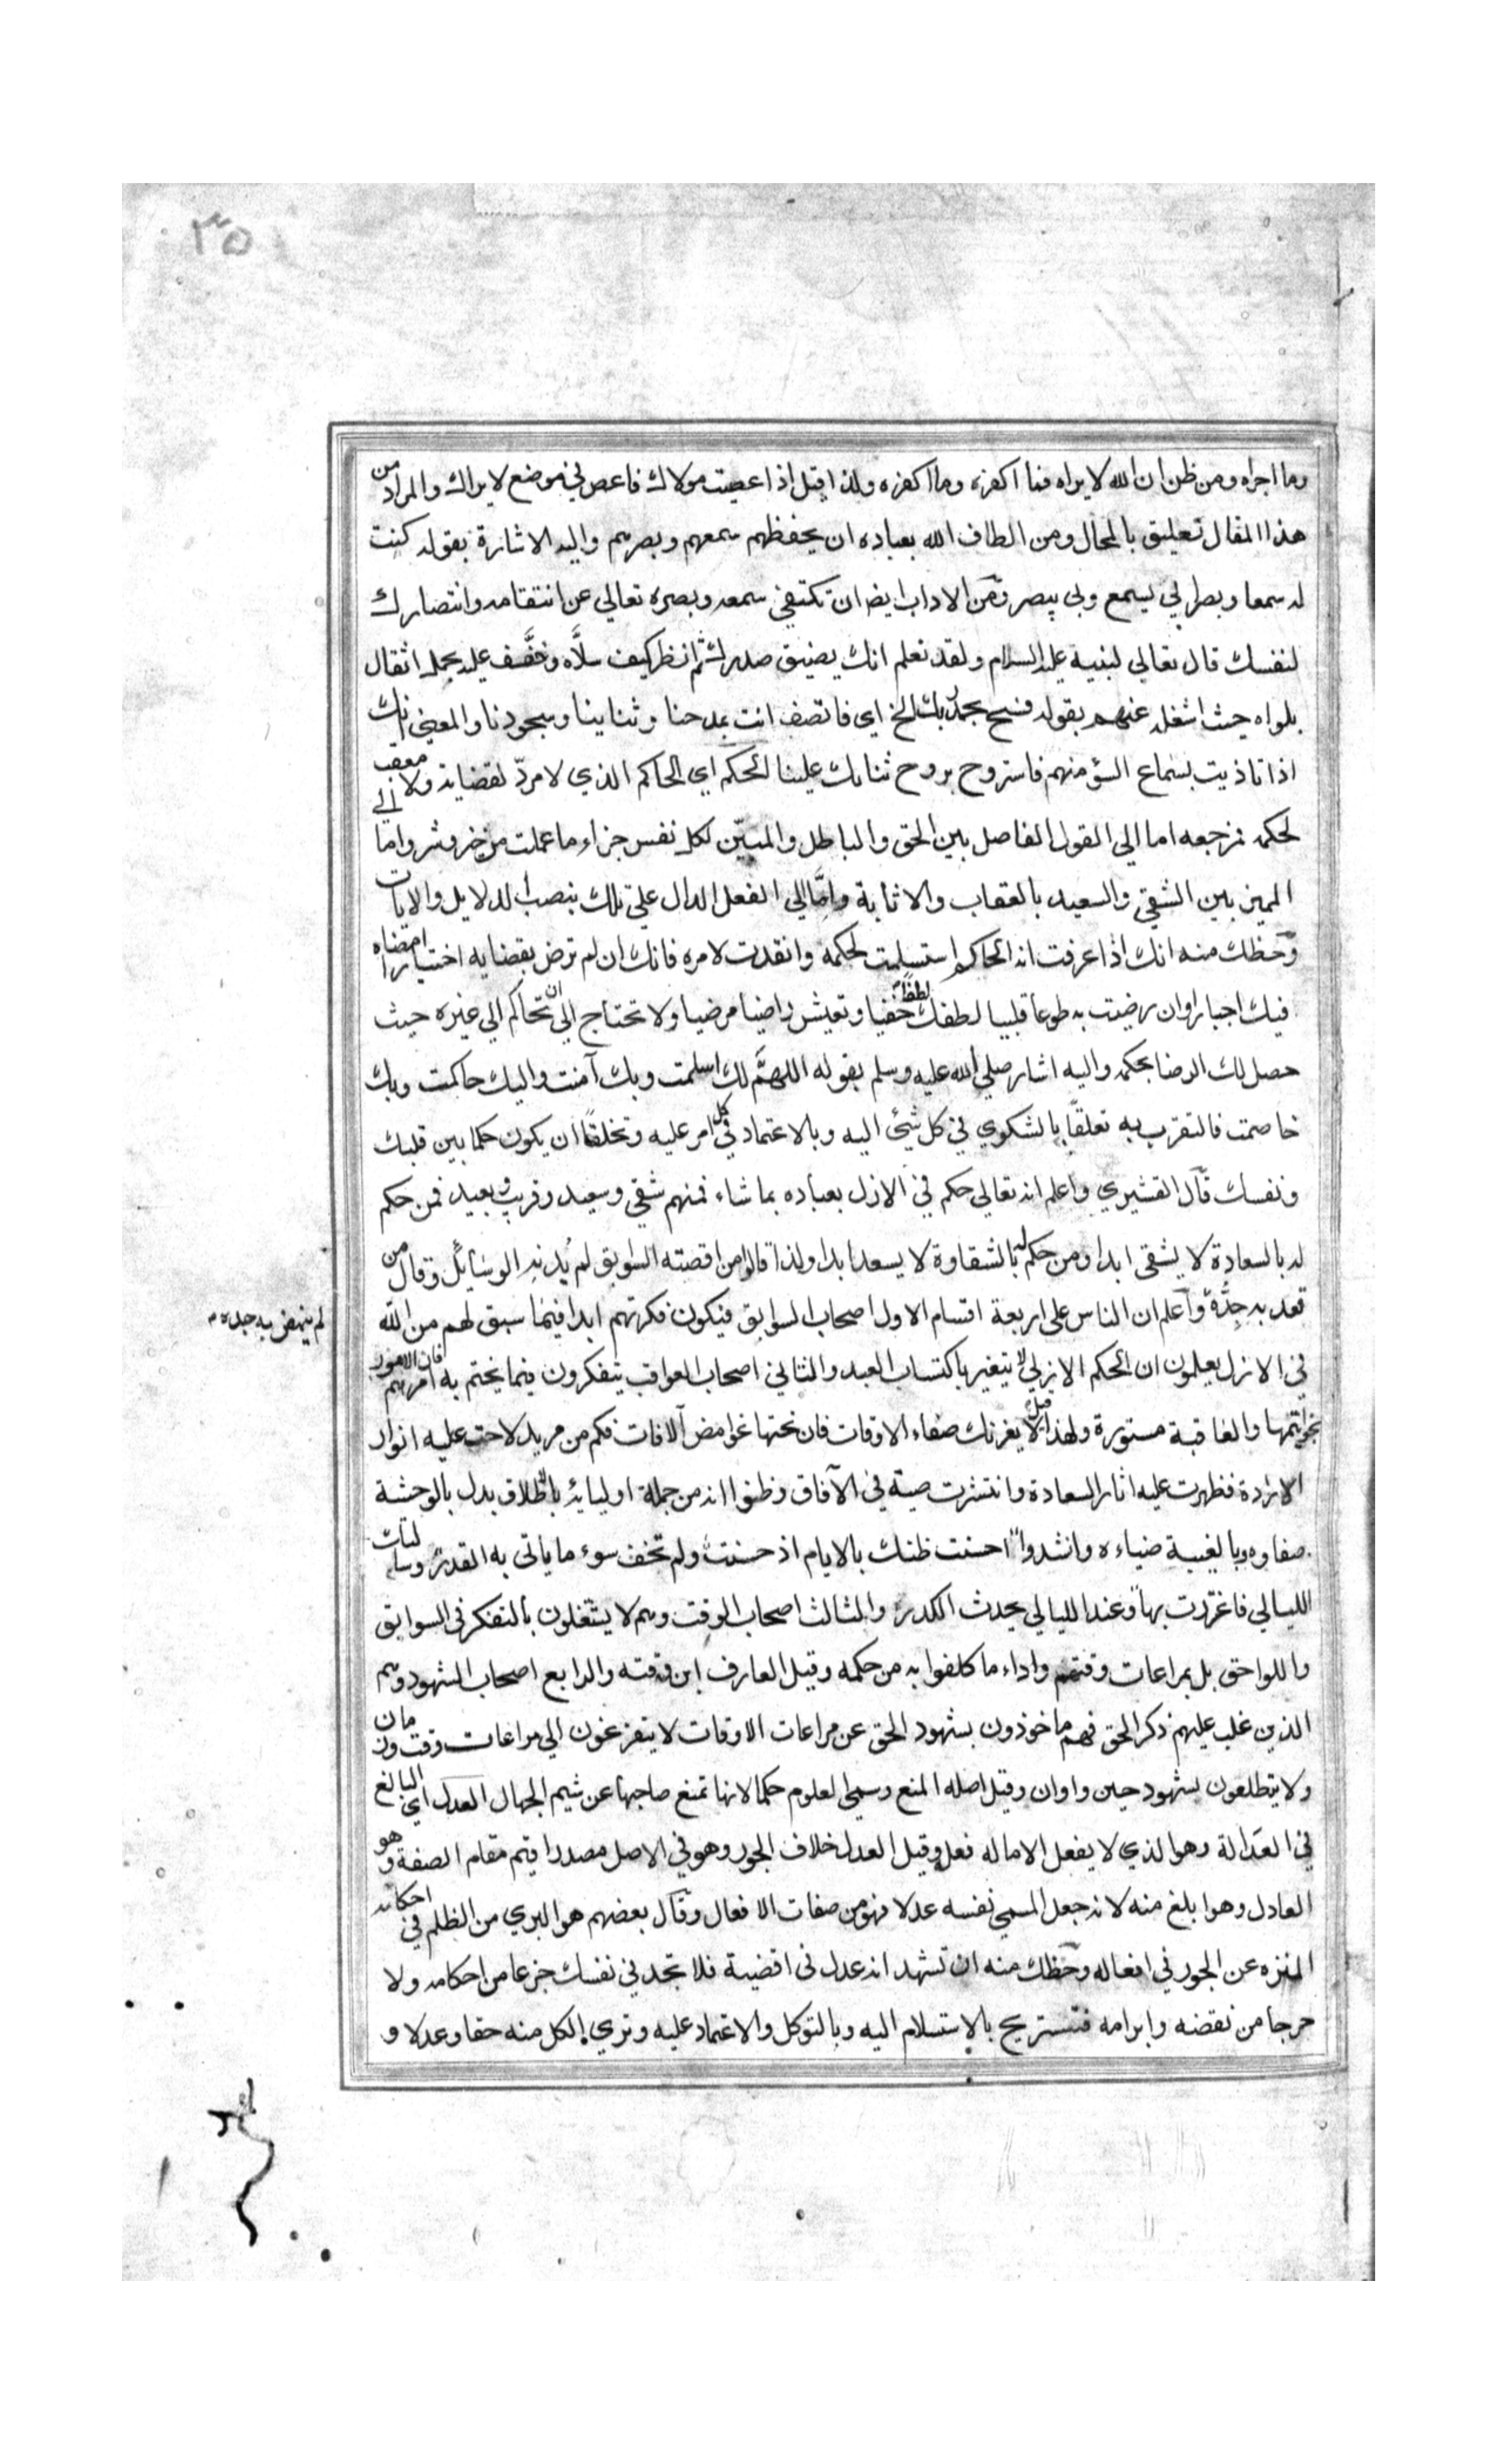 ٣٥
وما اجراه ومن ظن ان الله لا يراه فما اكفره وما اكفره ولذا قيل اذا عصيت مولاك فاعص في موضع لا يراك والمراد من
هذا المقال تعليق بالمحال ومن الطاف الله بعباده ان يحفظهم سمعهم وبصرهم واليه الاشارة بقوله كنت
له سمعا وبصرا بي يسمع وبي يبصر ومن الاداب ايضا ان تكتفي بسمعه وبصره تعالي عن انتقامه وانتصارك
لنفسك قال تعالي لنبيه عليه السلام ولقد نعلم انك يضيق صدرك ثم انظر كيف سلَّاه وخفَّف عليه بحمل اثقال
بلواه حيث اشغله عنهم بقوله فسبح بحمد ربك الخ اي فاتصف انت بمدحنا وثناينا وسجودنا والمعني انك
اذا تاذيت بسماع السؤ منهم فاستروح بروح ثنائك علينا الحكم اي الحاكم الذي لا مردّ لقضايه ولا معقب
لحكمه فمرجعه اما الي القول الفاصل بين الحق والباطل والمبيّن لكل نفس جزاء ما عملت من خير وشر واما الي
المميز بين الشقي والسعيد بالعقاب والاثابة وامّا الي الفعل الدال علي ذلك بنصب الدلايل والايات
وحظك منه انك اذا عرفت انه الحاكم استسلمت لحكمه وانقدت لامره فانك ان لم ترض بقضايه اختيارا امضاه
فيك اجبارا وان رضيت به طوعا قلبيا لطفك لطفًا خفيا وتعيش راضيا مرضيا ولا تحتاج الي ان تحاكم الي غيره حيث
حصل لك الرضا بحكمه واليه اشار صلي الله عليه وسلم بقوله اللهمَّ لك اسلمت وبك آمنت واليك حاكمت وبك
خاصمت فالتقرب به تعلقًا بالشكوي في كل شئ اليه وبالاعتماد في كل امر عليه وتخلقًا ان يكون حكما بين قلبك
ونفسك قال القشيري واعلم انه تعالي حكم في الازل بعباده بما شاء فمنهم شقي وسعيد وقريب وبعيد فمن حكم
له بالسعادة لا يشقى ابدا ومن حكم له بالشقاوة لا يسعد ابدا ولذا قالوا من اقصته السوابق لم يُدنه الوسائل وقال من
قعد به جِدُّه واعلم ان الناس على اربعة اقسام الاول اصحاب السوابق فيكون فكرتهم ابدا فيما سبق لهم من الله
لم ينهض به جده م
في الازل يعلمون ان الحكم الازلي لا يتغير باكتساب العبد والثاني اصحاب العواقب يتفكرون فيما يختم به امرهم فان الامور
بخواتمها والعاقبة مستورة ولهذا قيل لا يغرنك صفاء الاوقات فان تحتها غوامض الافات فكم من مريد لاحت عليه انوار
الارادة فظهرت عليه اثار السعادة وانتشرت صيته في الآفاق وظنوا انه من جملة اوليائه بالاطلاق بدل بالوحشة
صفاوه وبالغيبة ضياءه وانشدوا احسنت ظنك بالايام اذ حسنت ولم تخف سوء ما ياتي به القدر وسالمتك
الليالي فاغتررت بها وعند الليالي يحدث الكدر والثالث اصحاب الوقت وهم لا يشتغلون بالتفكر في السوابق
واللواحق بل بمراعات وقتهم واداء ما كلفوا به من حكمه وقيل العارف ابن وقته والرابع اصحاب الشهود وهم
الذين غلب عليهم ذكر الحق فهم ماخوذون بشهود الحق عن مراعات الاوقات لا يتفرغون الي مراعات وقت وزمان
ولا يتطلعون بشهود حين واوان وقيل اصله المنع وسمي العلوم حكما لانها تمنع صاحبها عن شيم الجهال العدل اي البالغ
في العدالة وهو الذي لا يفعل الا ماله فعله وقيل العدل خلاف الجور وهو في الاصل مصدر اقيم مقام الصفة وهو
العادل وهو ابلغ منه لانه جعل المسمي نفسه عدلا فهو من صفات الافعال وقال بعضهم هو البري من الظلم في احكامه
المنزه عن الجور في افعاله وحظك منه ان تشهد انه عدل في اقضية فلا تجد في نفسك جزعا من احكامه ولا
حرجا من نقضه وابرامه فتستريح بالاستسلام اليه وبالتوكل والاعتماد عليه وتري الكل منه حقا وعدلا و